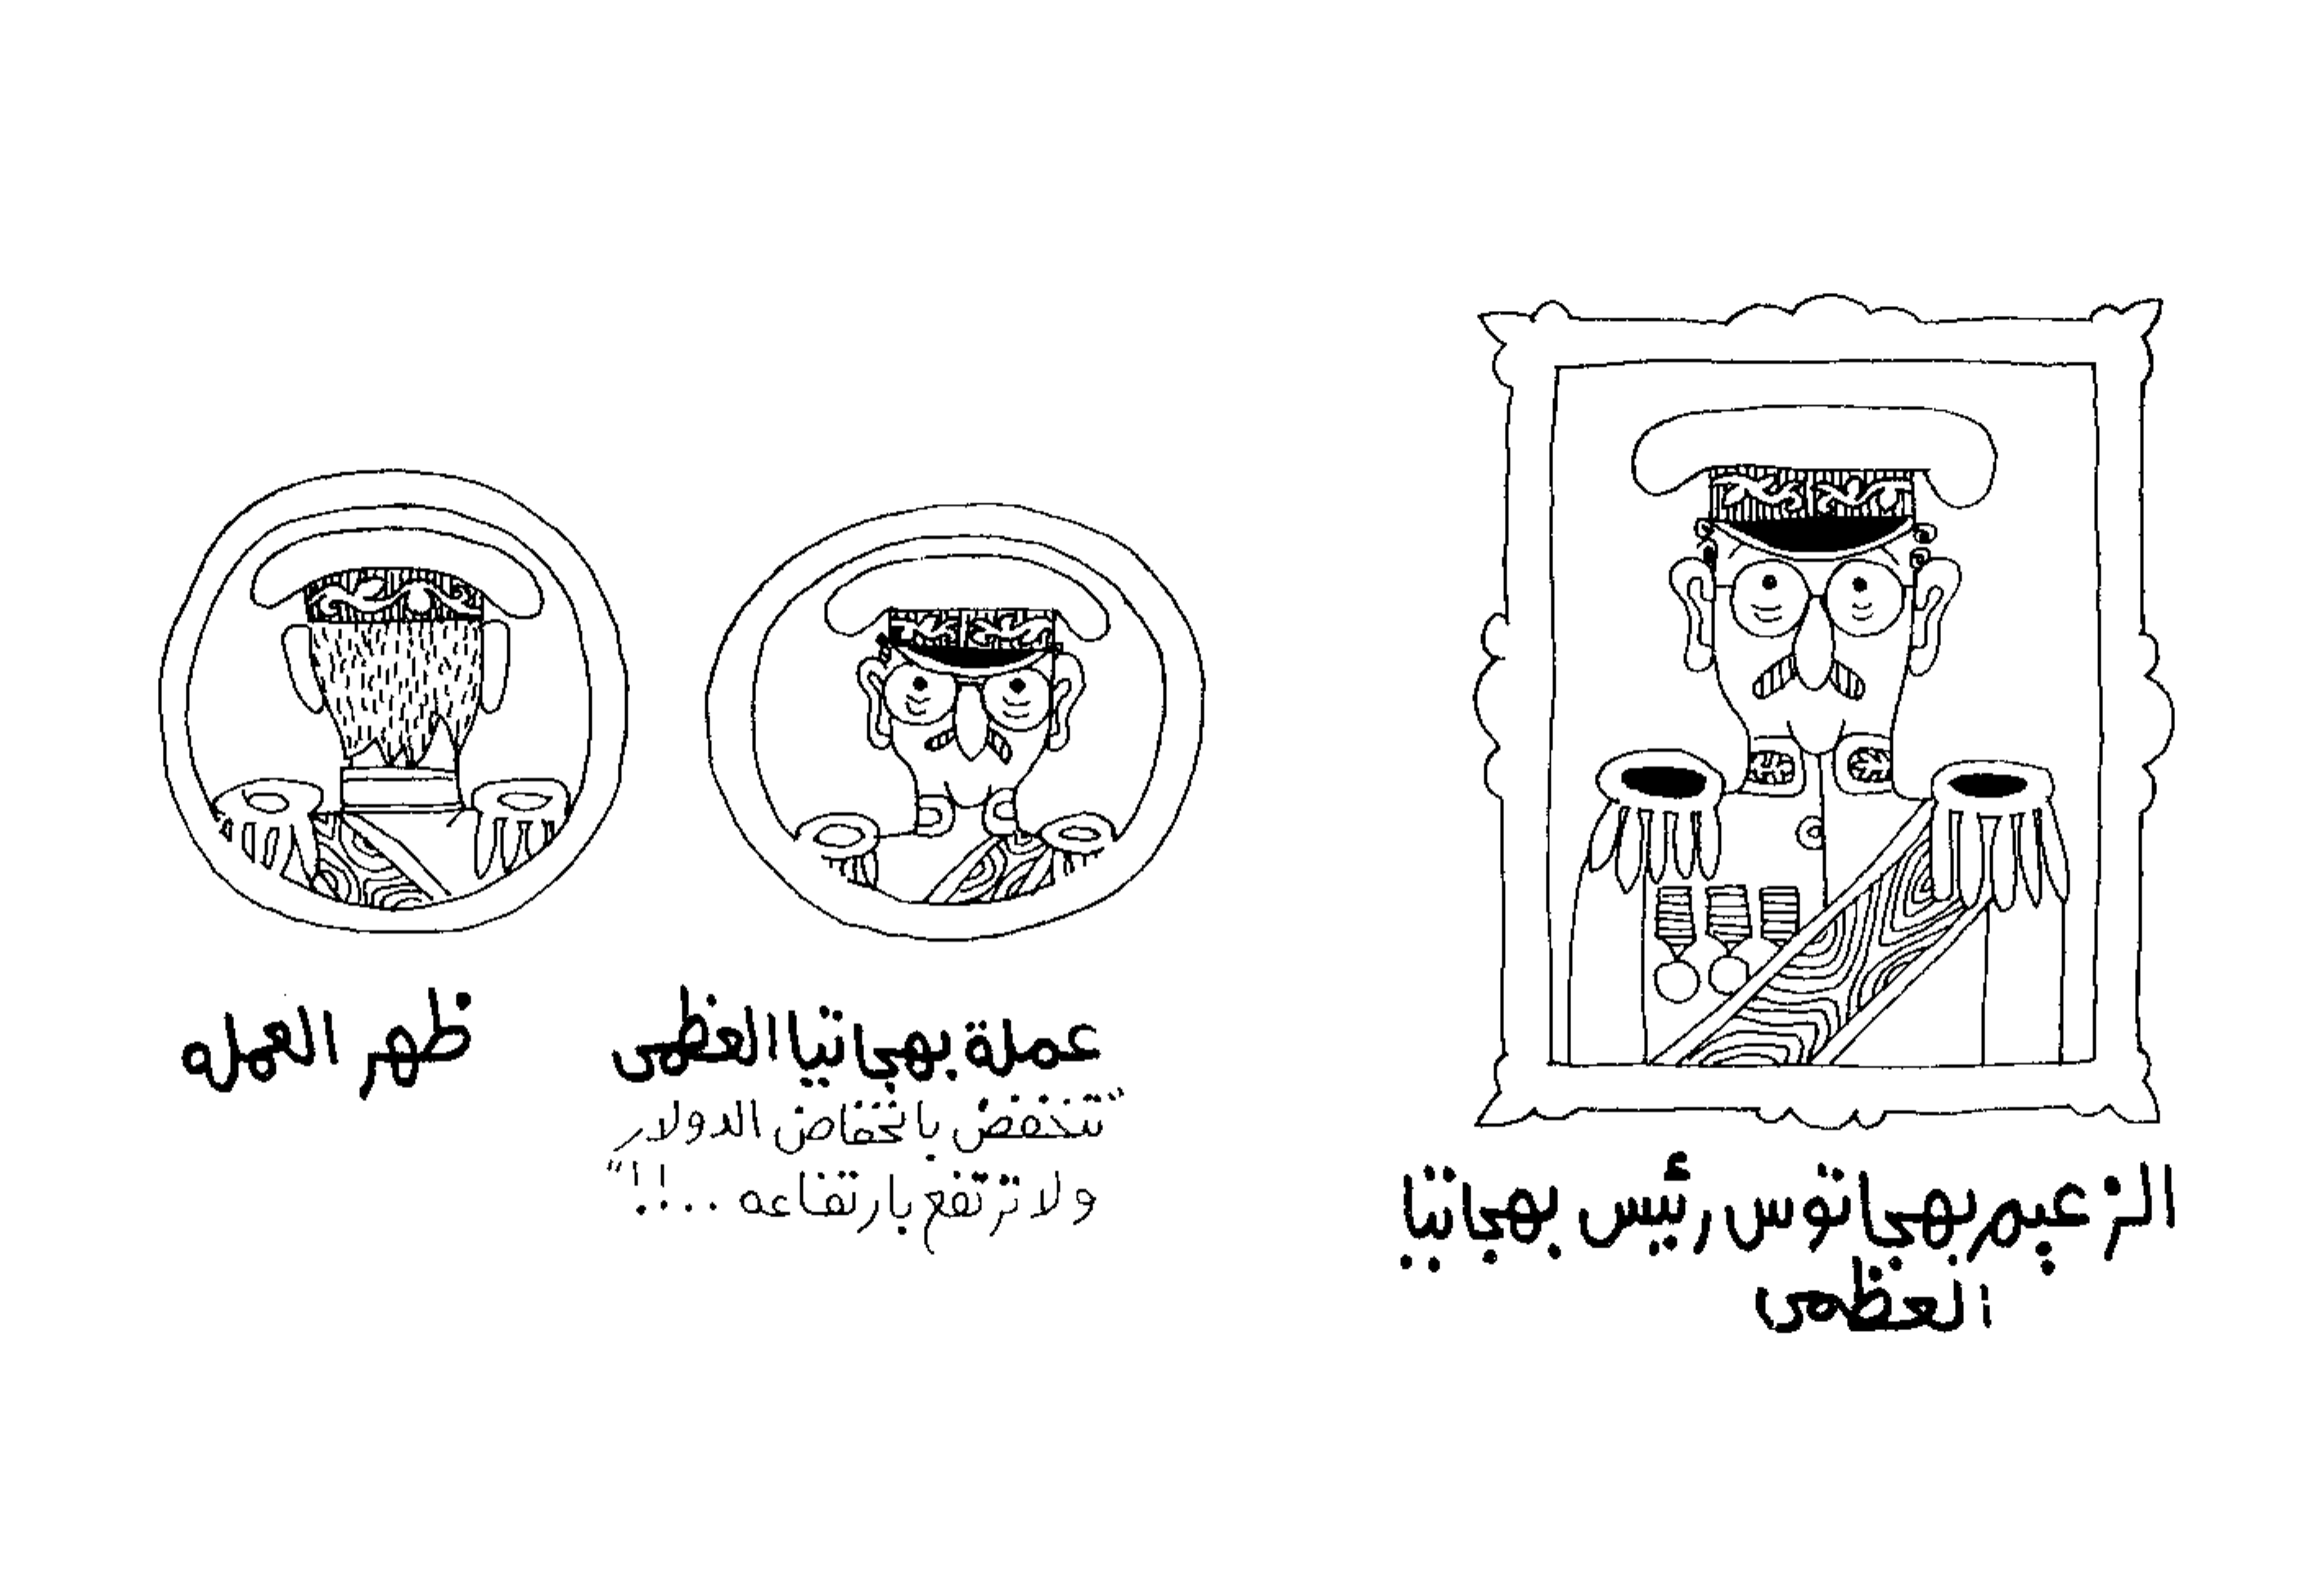 الزعيم بهجاتوس رئيس بهجاتيا
العظمى
عملة بهجاتيا العظمى
"تنخفض بانخفاض الدولار
ولا ترتفع بارتفاعه ..!!"
ظهر العمله